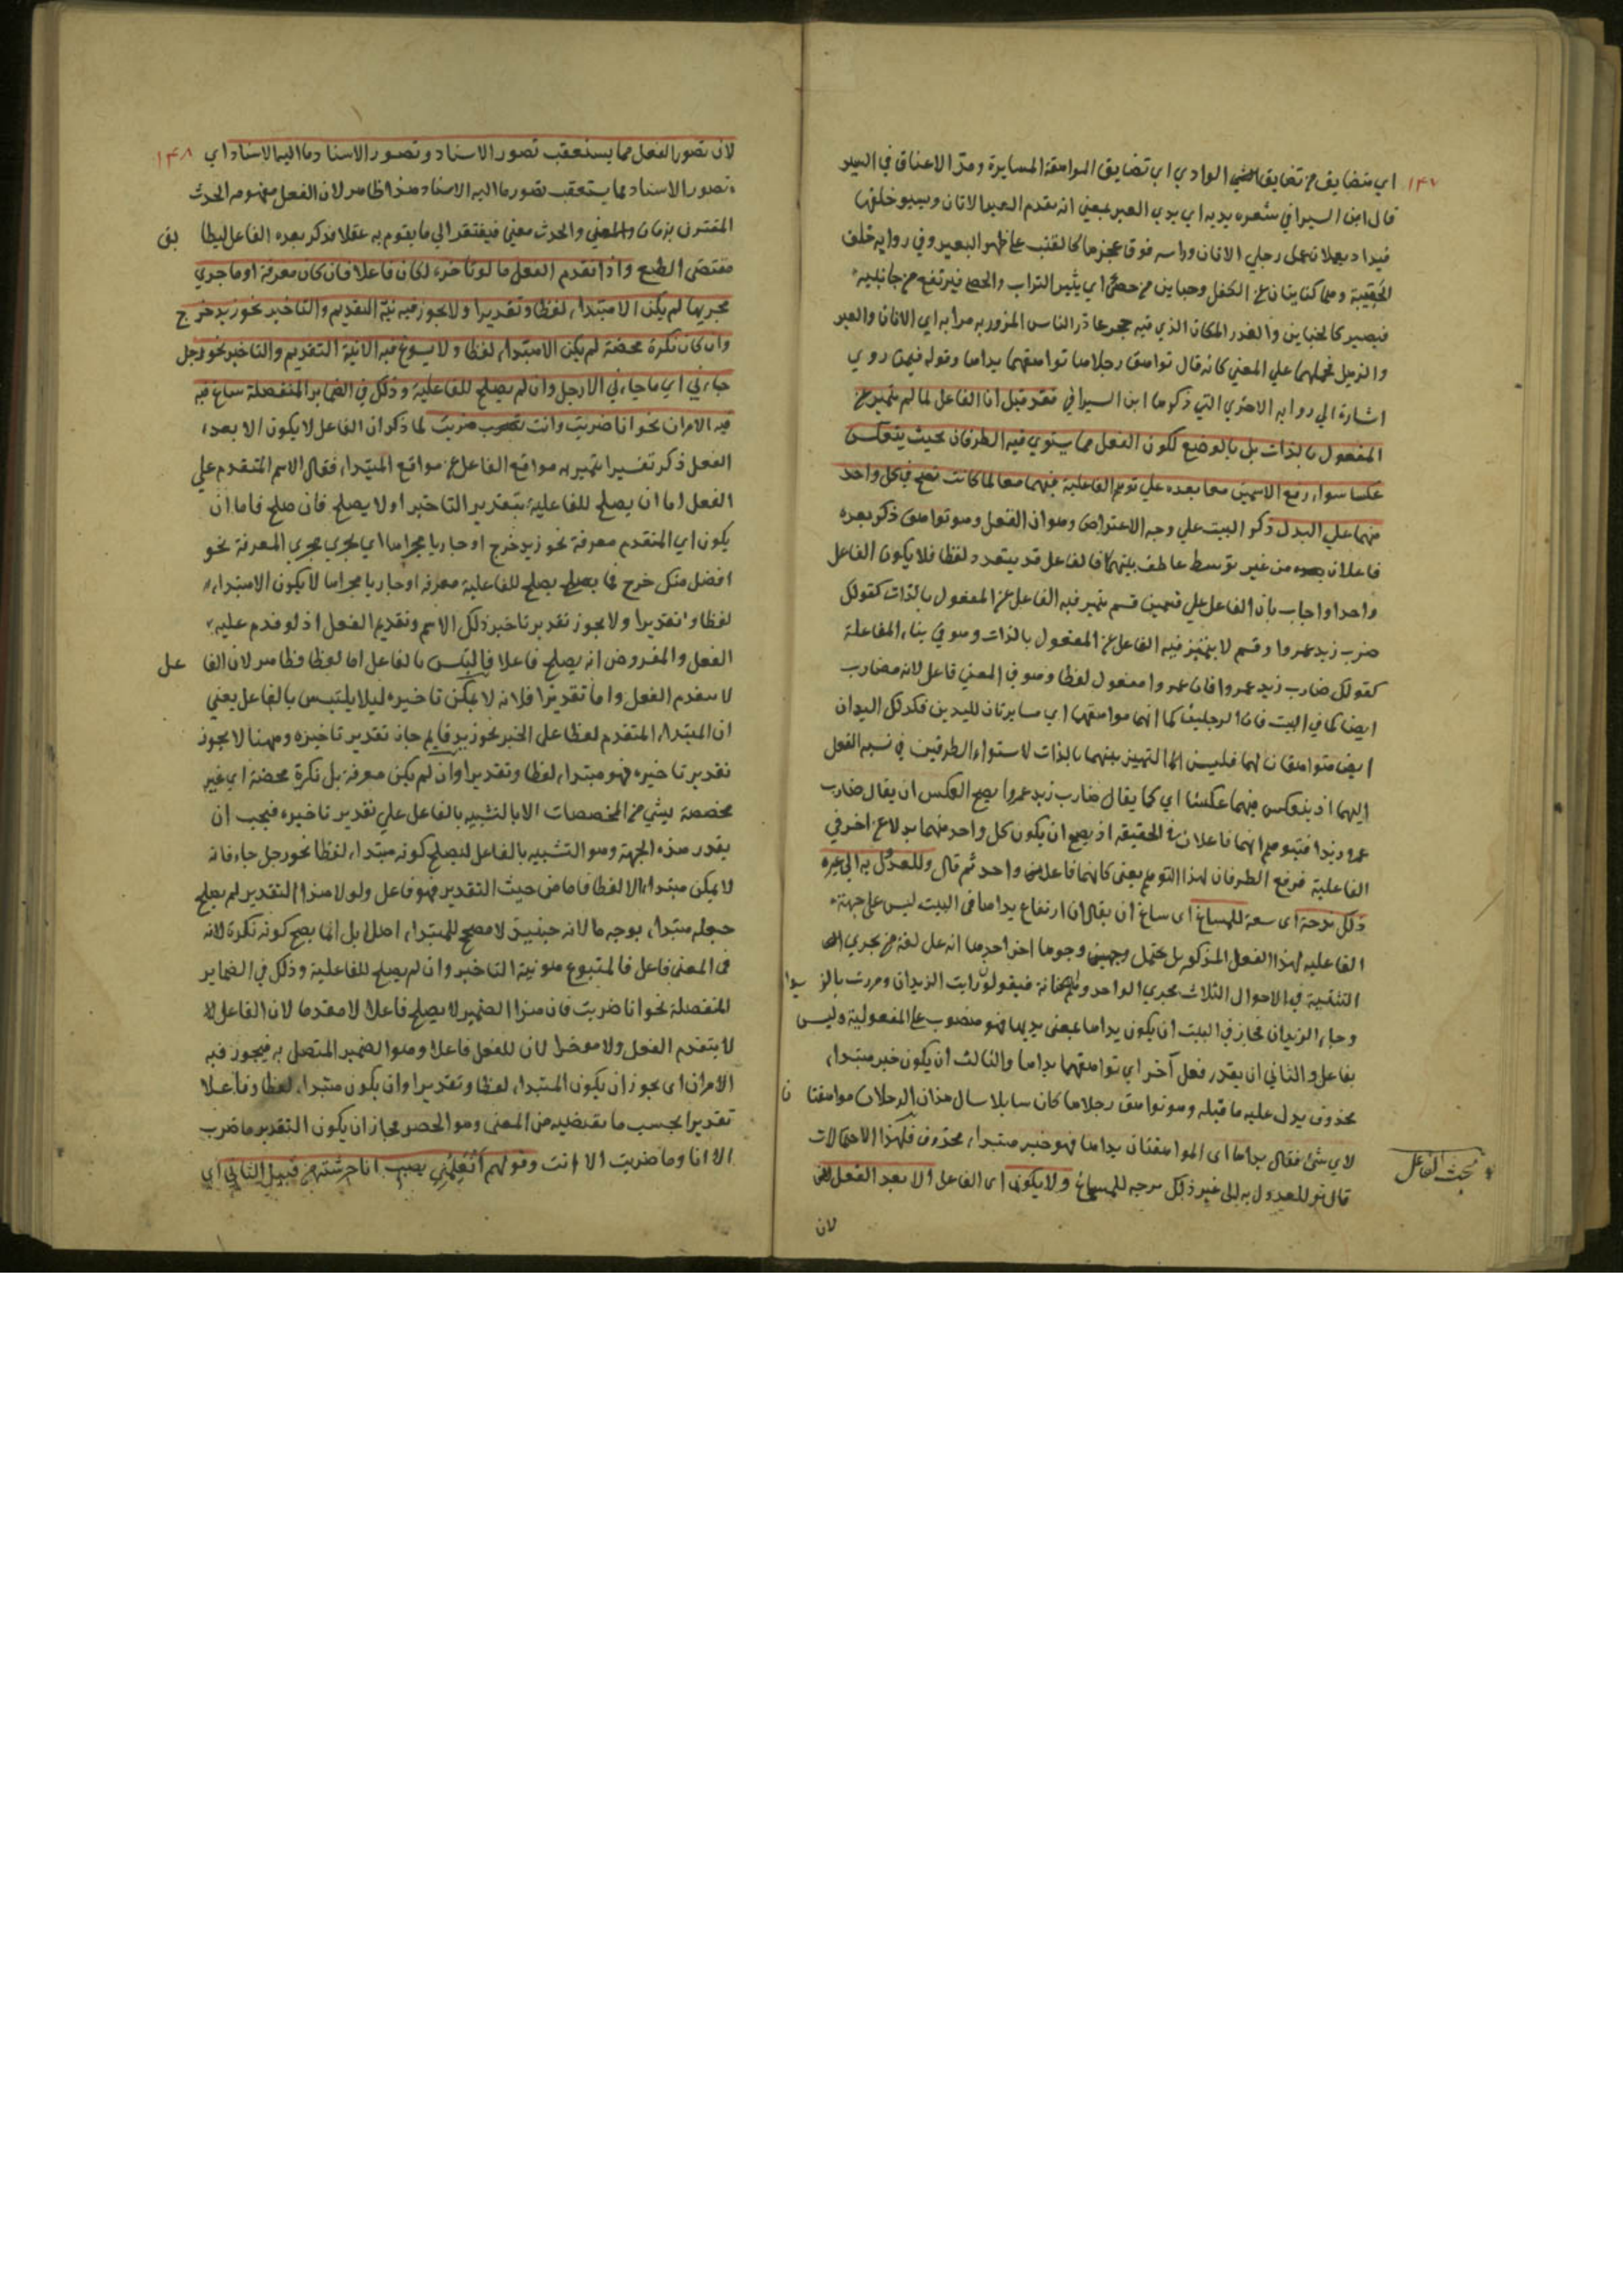 ١٤٧
اي متضايق من تضايق الوادي اي تضايق المواهقة المسايرة ومد الاعناق في السير
قال ابن السيرافي شعره يديه اي يدي العير بمعنى انه يقدم العير الاتان ويسير خلفها
فيداه تعملان كعمل رجلي الاتان وراسه فوق عجزها كالقتب على ظهر البعير وفي رواية خلف
الحقيبة وهما كنايتان عن الكفل اي يثير التراب والحصى فيرتفع من جانبيه
والغدر المكان الذي فيه
علي المعني كانه قال تواهق رجلاها تواهقهما يداها وقوله فيمن روي
اشارة الي رواية الاخري التي ذكرها ابن السيرافي فقد قيل ان الفاعل لما لم يتميز عن
المفعول بالذات بل بالوضع لكون الفعل مما يستوي فيه الطرفان بحيث ينعكس
عكسا سواء رفع الاسمين معا بعده علي توهم الفاعلية فيهما معا لما كانت تصح في كل واحد
منهما علي البدل ذكر البيت علي وجه الاعتراض وهو ان الفعل وهو تواهق ذكر بعده
فاعلان من غير توسط عاطف بينهما فالفاعل قد يتعدد لفظا فلا يكون الفاعل
واحدا واجاب بان الفاعل علي قسمين قسم يتميز فيه الفاعل عن المفعول بالذات كقولك
ضرب زيد عمروا وقسم لا يتميز فيه الفاعل عن المفعول بالذات وهو في بناء المفاعلة
كقولك ضارب زيد عمروا فان عمروا مفعول لفظا وهو في المعني فاعل لانه مضارب
ايضا كما في البيت فان الرجلين كما انهما مواهقتها اي مسايرتان لليدين فكذلك اليدان
ايضا متواهقتان لهما فليس التميز بينهما بالذات لاستواء الطرفين في نسبة الفعل
اليهما اذ ينعكس منهما عكسا اي كما يقال ضارب زيد عمروا يصح العكس ان يقال ضارب
عمرو زيدا فتيوهم انهما فاعلان في الحقيقة اذ يصح ان يكون كل واحد منهما بدلا عن اخر في
الفاعلية فرفع الطرفان لهذا التوهم يعني كانهما فاعلا واحد ثم قال وللعدول به الي غيره
ذلك مندوحة اي سعة للمساغ اي ساغ ان يقال ان ارتفاع يداها في البيت ليس علي جهة
الفاعلية لهذا الفعل المذكور بل يحتمل وجوها اخر احدها انه علي لغة من يجري
التثنية في الاحوال الثلاث مجري الواحد فيقولون رايت الزيدان ومررت بالزيدان
وجاء الزيدان فجاز في البيت ان يكون يداها بمعنى يديها فهو منصوب علي المفعولية وليس
بفاعل والثاني ان يقدر فعل آخر اي تواهقهما يداها والثالث ان يكون خبر مبتداء
محذوف يدل عليه ما قبله وهو تواهق رجلاها كان سايلا سال هذان الرجلان مواهقتان
لاي شئ فقال يداها اي المواهقتان يداها فهو خبر مبتداء محذوف فلهذا الاحتمالات
قال وللعدول به الي غير ذلك للمساغ ولا يكون اي الفاعل الا بعد الفعل
مبحث الفاعل
لان
١٤٨
لان تصور الفعل مما يستعقب تصور الاسناد وتصور الاسناد وما اليه الاسناد اي
تصور الاسناد مما يستعقب تصور ما اليه الاسناد هذا ظاهر لان الفعل مفهومه الحدث
المقترن بزمان والحدث معني فيفتقر الي ما يقوم به عقلا فذكر بعده الفاعل ليطابق
مقتضى الطبع واذا تقدم الفعل ما لو تاخر لكان فاعلا فان كان معرفة او ما جري
مجريها لم يكن الا مبتداء لفظا وتقديرا ولا يجوز فيه نية التقديم والتاخير نحو زيد خرج
وان كان نكرة محضة لم يكن الا مبتداء لفظا ولا يسوغ فيه الا نية التقديم والتاخير نحو رجل
جاءني اي ما جاءني الا رجل وان لم يصلح للفاعلية وذلك في الضمائر المنفصلة ساغ فيه
فيه الامران نحو انا ضربت وانت ضربت لما ذكر ان الفاعل لا يكون الا بعد
الفعل ذكر تفسيرا يتميز به مواقع الفاعل عن مواقع المبتداء فقال الاسم المتقدم علي
الفعل اما ان يصلح للفاعلية بتقدير التاخير او لا يصلح فان صلح فاما ان
يكون اي المتقدم معرفة نحو زيد خرج او جاريا مجراها اي يجري مجري المعرفة نحو
افضل منك خرج فما يصلح للفاعلية معرفة او جاريا مجراها لا يكون الا مبتداء
لفظا وتقديرا ولا يجوز تقدير تاخير ذلك الاسم وتقديم الفعل اذ لو قدم عليه
الفعل والمفروض انه يصلح فاعلا فالتبس بالفاعل اما لفظا فظاهر لان الفاعل
لا يتقدم الفعل واما تقديرا فلانه لا يمكن تاخيره ليلا يلتبس بالفاعل يعني
ان المبتداء المتقدم لفظا علي الخبر نحو زيد قايم جاز تقدير تاخيره وههنا لا يجوز
تقدير تاخيره فهو مبتداء لفظا وتقديرا وان لم يكن معرفة بل نكرة محضة اي غير
مخصصة بشئ من المخصصات الا بالتشبيه بالفاعل علي تقدير تاخيره فيجب ان
يقدر هذه الجهة وهو التشبيه بالفاعل ليصلح كونه مبتداء لفظا نحو رجل جاء فانه
لا يكن مبتداء الا لفظا فاما من حيث التقدير فهو فاعل ولولا هذا التقدير لم يصلح
جعله مبتداء بوجه ما لانه حينئذ لا مصحح للمبتداء اصلا بل انما يصح كونه نكرة لانه
في المعنى فاعل فالمتبوع هو نية التاخير وان لم يصلح للفاعلية وذلك في الضماير
المنفصلة نحو انا ضربت فان هذا الضمير لا يصلح فاعلا لا مقدما لان الفاعل لا
لا يتقدم الفعل ولا موخرا لان للفعل فاعلا وهو الضمير المتصل به فيجوز فيه
الامران اي يجوز ان يكون المبتداء لفظا وتقديرا وان يكون مبتداء لفظا وفاعلا
تقديرا بحسب ما يقتضيه من المعنى وهو الحصر فجاز ان يكون التقدير ما ضرب
الا انا وما ضربت الا انت وقولهم أتعلمني بضب انا حرشته من قبيل الثاني اي